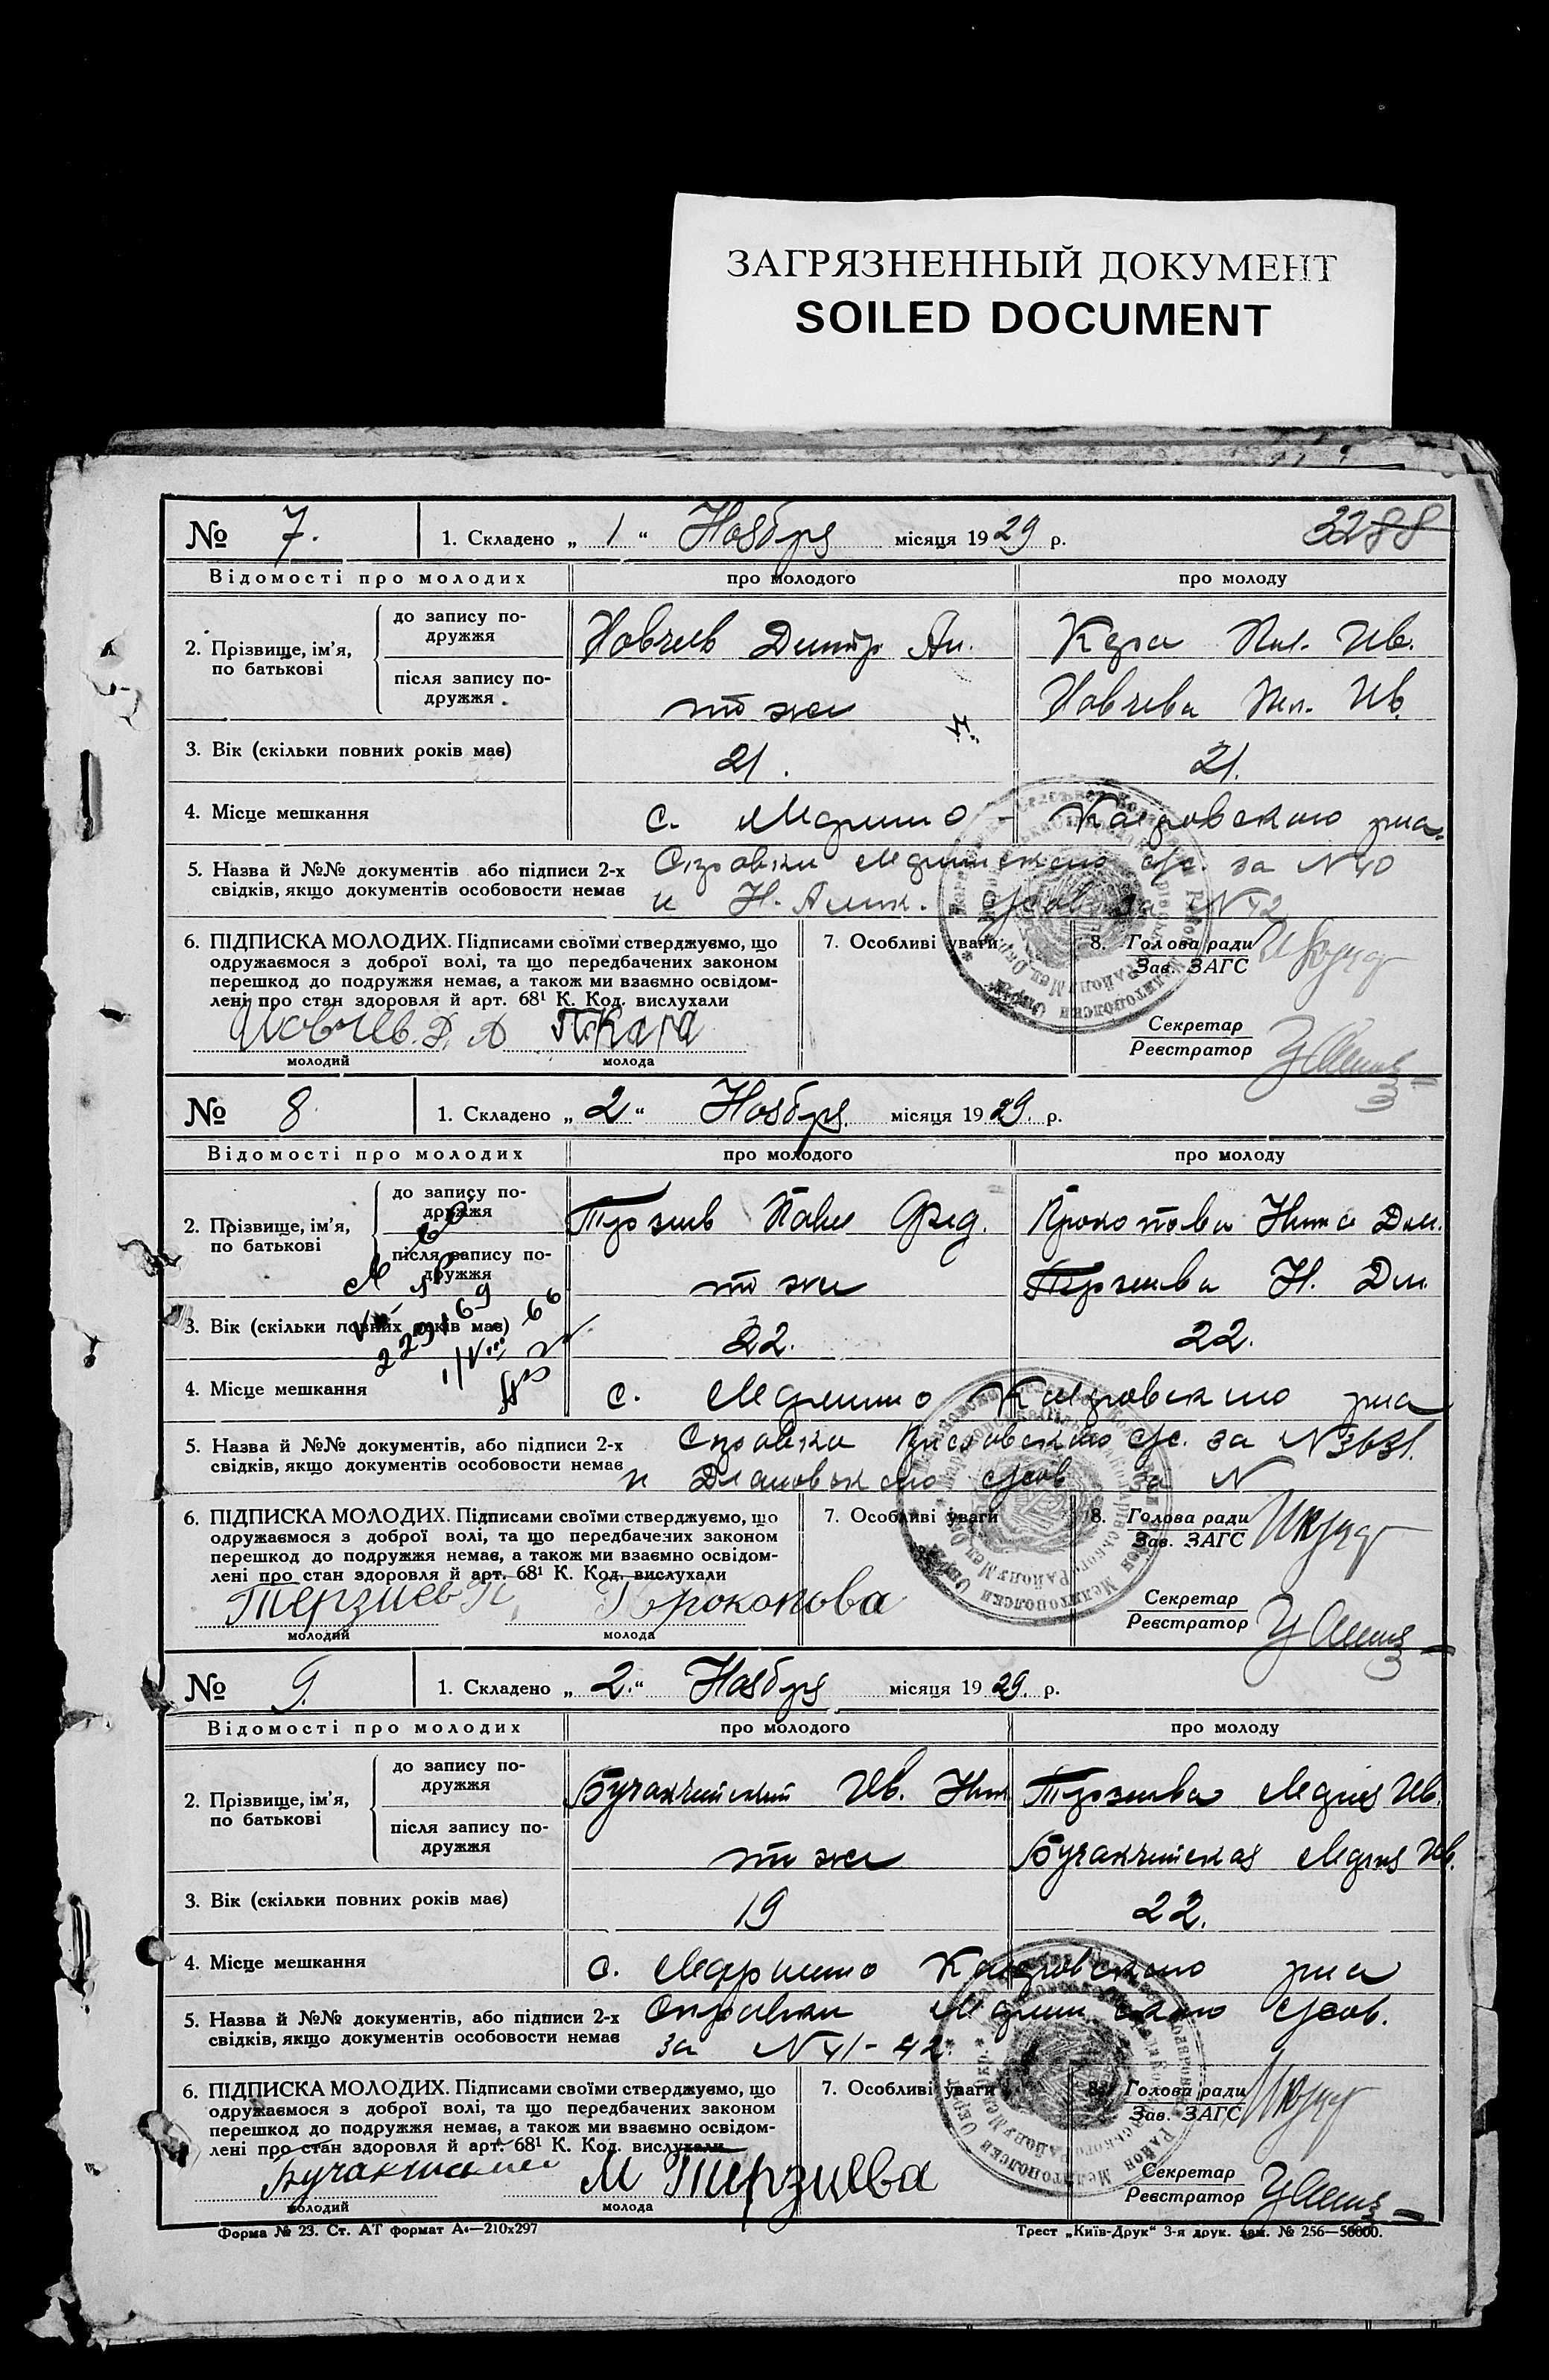 ЗАГРЯЗНЕННЫЙ ДОКУМЕНТ
SOILED DOCUMENT
№ 7. 1. Складено „ 1 “ Ноября місяця 1929 р. 3288
Відомості про молодих про молодого про молоду
2. Прізвище, ім’я, по батькові
до запису подружжя Новчев Дмитр. Ан. Кара Пел. Ив.
після запису подружжя то же Новчева Пел. Ив.
3. Вік (скільки повних років має) 21. 21.
4. Місце мешкання с. Марино Каировского р-на
5. Назва й №№ документів або підписи 2-х Справки Маринского с/с. за N 40
свідків, якщо документів особовости немає и Н. за N 12
6. ПІДПИСКА МОЛОДИХ. Підписами своїми стверджуємо, що 7. Особливі уваги 8. Голова ради
одружаємося з доброї волі, та що передбачених законом Зав. ЗАГС
перешкод до подружжя немає, а також ми взаємно освідом-
лені про стан здоровля й арт. 68¹ К. Код. вислухали
Новчев. Д. А П.Кара Секретар
молодий молода Реєстратор
№ 8. 1. Складено „ 2 “ Ноября місяця 1929. р.
Відомості про молодих про молодого про молоду
2. Прізвище, ім’я, по батькові
до запису подружжя Терзиев Павел Фед. Прокопова Нина Дм.
після запису подружжя то же Терзиева Н. Дм.
3. Вік (скільки повних років має) 22. 22.
4. Місце мешкання с. Марино Каировского р-на
5. Назва й №№ документів, або підписи 2-х Справки с/с. за N 3631.
свідків, якщо документів особовости немає и с/сов за N
6. ПІДПИСКА МОЛОДИХ. Підписами своїми стверджуємо, що 7. Особливі уваги 8. Голова ради
одружаємося з доброї волі, та що передбачених законом Зав. ЗАГС
перешкод до подружжя немає, а також ми взаємно освідом-
лені про стан здоровля й арт. 68¹ К. Код. вислухали
Терзиев П. Прокопова Секретар
молодий молода Реєстратор
№ 9. 1. Складено „ 2. “ Ноября місяця 1929. р.
Відомості про молодих про молодого про молоду
2. Прізвище, ім’я, по батькові
до запису подружжя Бучакчийский Ив. Ник Терзиева Мария Ив.
після запису подружжя то же Бучакчийская Мария Ив.
3. Вік (скільки повних років має) 19 22.
4. Місце мешкання с. Марино Каировского р-на
5. Назва й №№ документів, або підписи 2-х Справки Маринского с/сов.
свідків, якщо документів особовости немає за N 41-42.
6. ПІДПИСКА МОЛОДИХ. Підписами своїми стверджуємо, що 7. Особливі уваги 8. Голова ради
одружаємося з доброї волі, та що передбачених законом Зав. ЗАГС
перешкод до подружжя немає, а також ми взаємно освідом-
лені про стан здоровля й арт. 68¹ К. Код. вислухали
М Терзиева Секретар
молодий молода Реєстратор
Форма № 23. Ст. АТ формат А4—210х297 Трест „Київ-Друк“ 3-я друк. зам. № 256—50000.